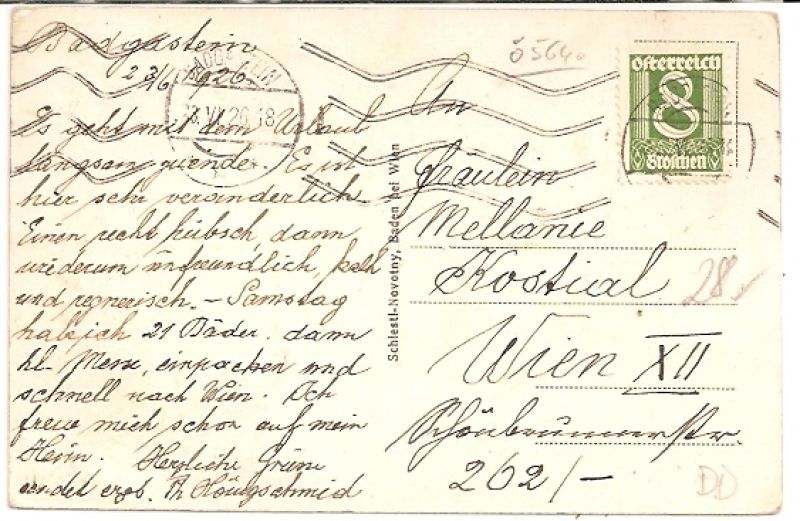 Badgastein
23/6 1926
Es geht mit dem Urlaub
langsam zuende. Es ist
hier sehr veränderlich.
Einen recht hübsch, dann
wiederum unfreundlich, kalt
und regnerisch. - Samstag
hab ich 21 Bäder, dann
hl. Messe, einpacken und
schnell nach Wien. Ich
freue mich schon auf mein
Heim. Herzliche Grüsse
sendet erg. Th.
BADGASTEIN
26.18
ö 564.
österreich
8
Groschen
An
Fräulein
Mellanie
Kostial
Wien XII
Schönbrunnerstr.
262/-
28
DD
Schiestl-Novotny, Baden bei Wien